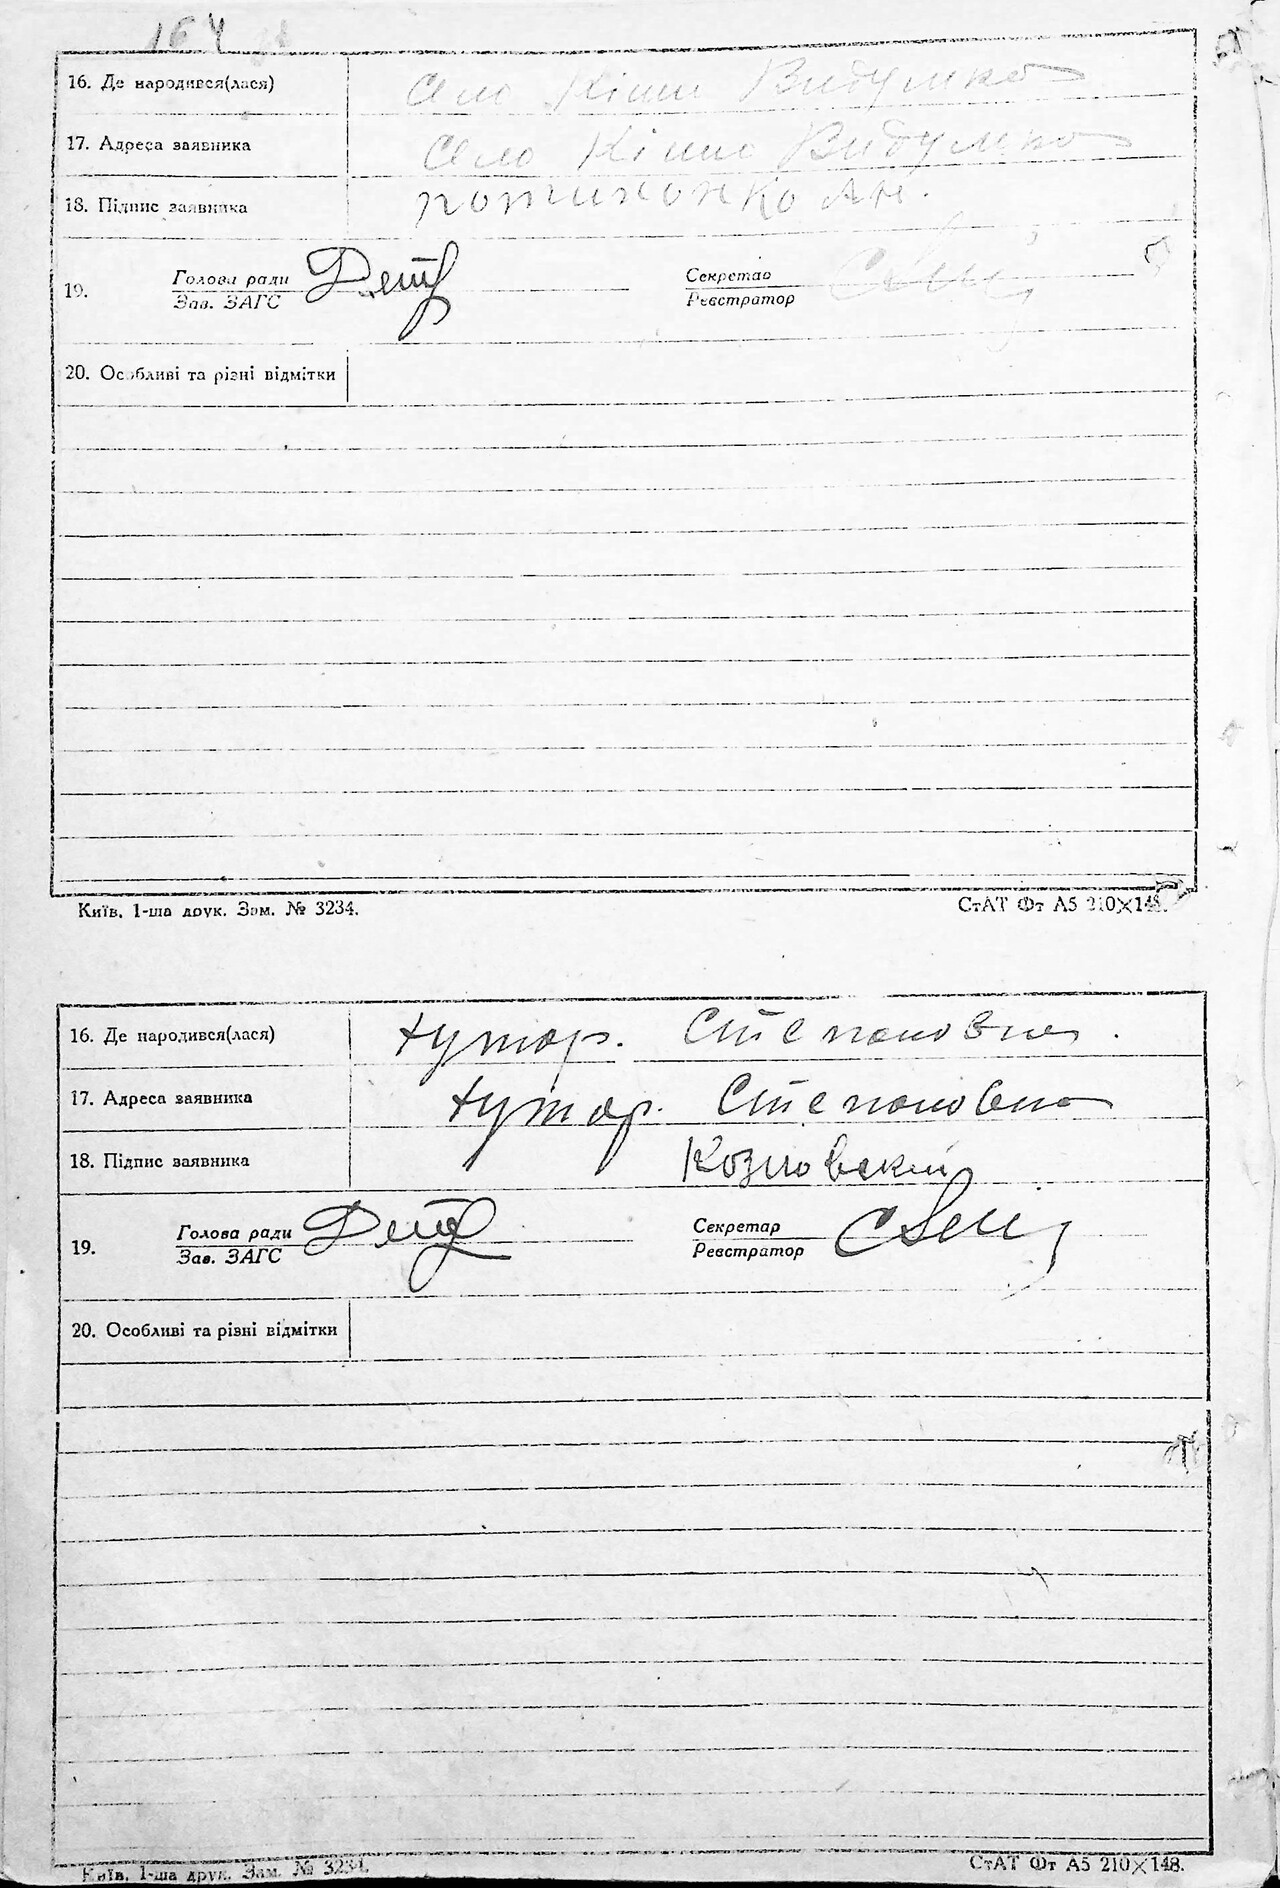 164
16. Де народився(лася) Село Кішин Видумка
17. Адреса заявника Село Кішин Видумка
18. Підпис заявника
19. Голова ради Секретар
Зав. ЗАГС Реєстратор
20. Особливі та різні відмітки
Київ, 1-ша друк. Зам. № 3234. СтАТ Фт А5 210×148.
16. Де народився(лася) хутор. Степановка
17. Адреса заявника хутор. Степановка
18. Підпис заявника Козловский
19. Голова ради Секретар
Зав. ЗАГС Реєстратор
20. Особливі та різні відмітки
Київ, 1-ша друк. Зам. № 3234. СтАТ Фт А5 210×148.